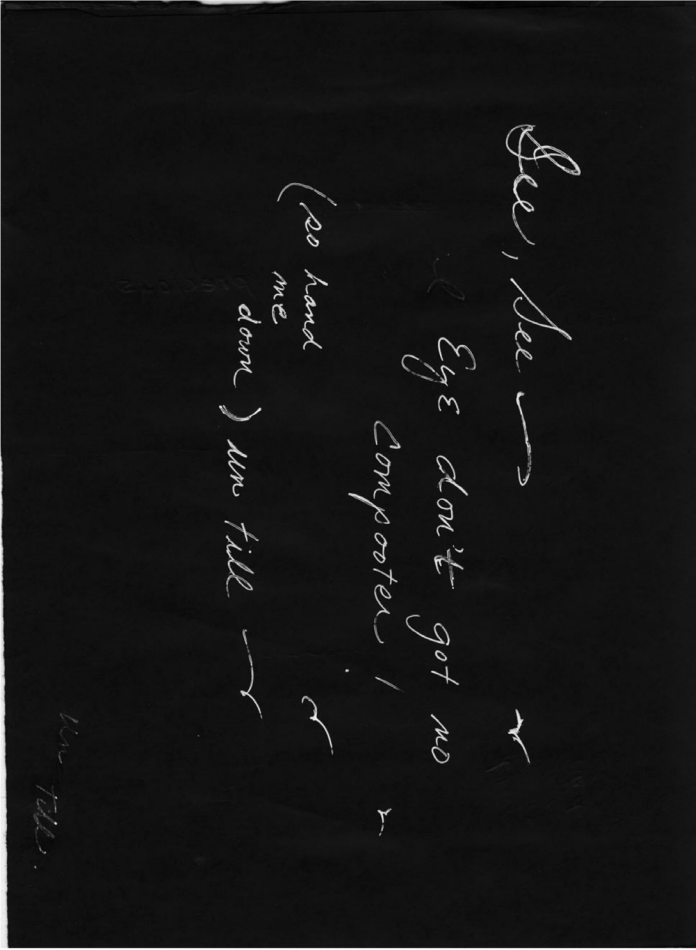 See, See
Eye don't got no
Compooter!
(so hand
me
down) un till
un till.